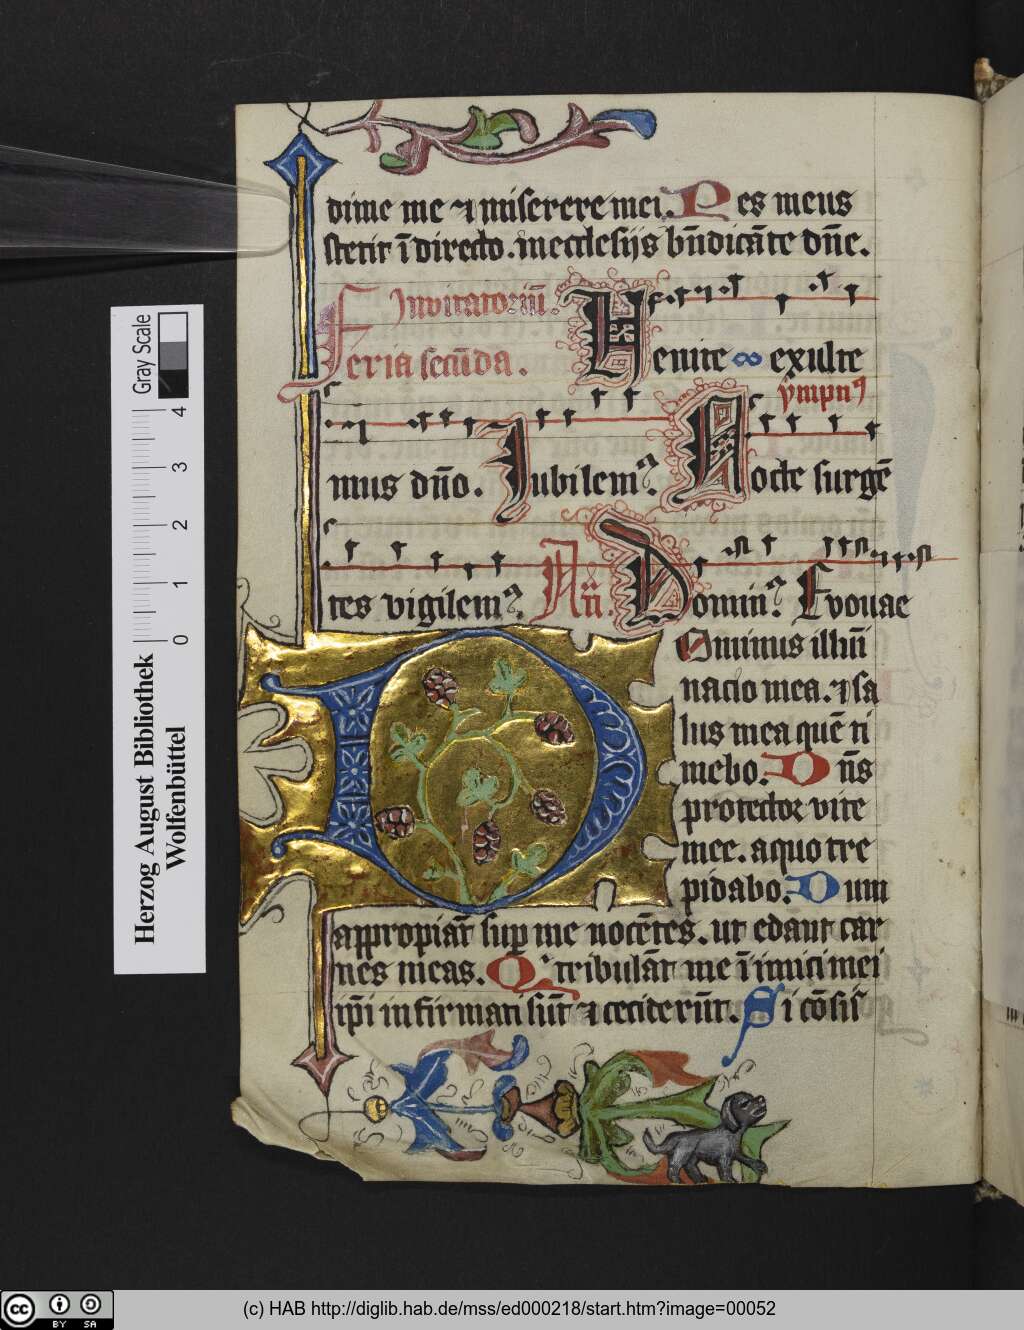 dime me ⁊ miserere mei. Pes meus
stetit ī directo. in ecclesijs bn̄dicā te dn̄e.
Invitatoriū.
Feria secūda.
Venite ∞ exulte
ympnꝰ
mus dn̄o. Iubilemꝰ. Nocte surgē
tes vigilemꝰ. An̄. Dominꝰ. Evouae
Ominus illūi
nacio mea. ⁊ sa
lus mea quē ti
mebo. Dn̄s
protector vite
mee. a quo tre
pidabo. Dum
appropiāt sup me nocētes. ut edant car
nes meas. Qⁱ tribulāt me īimici mei
ip̄i infirmati sūt ⁊ ceciderūt. Si cōsis̄
Gray Scale
4
3
2
1
0
Herzog August Bibliothek
Wolfenbüttel
cc BY SA
(c) HAB http://diglib.hab.de/mss/ed000218/start.htm?image=00052